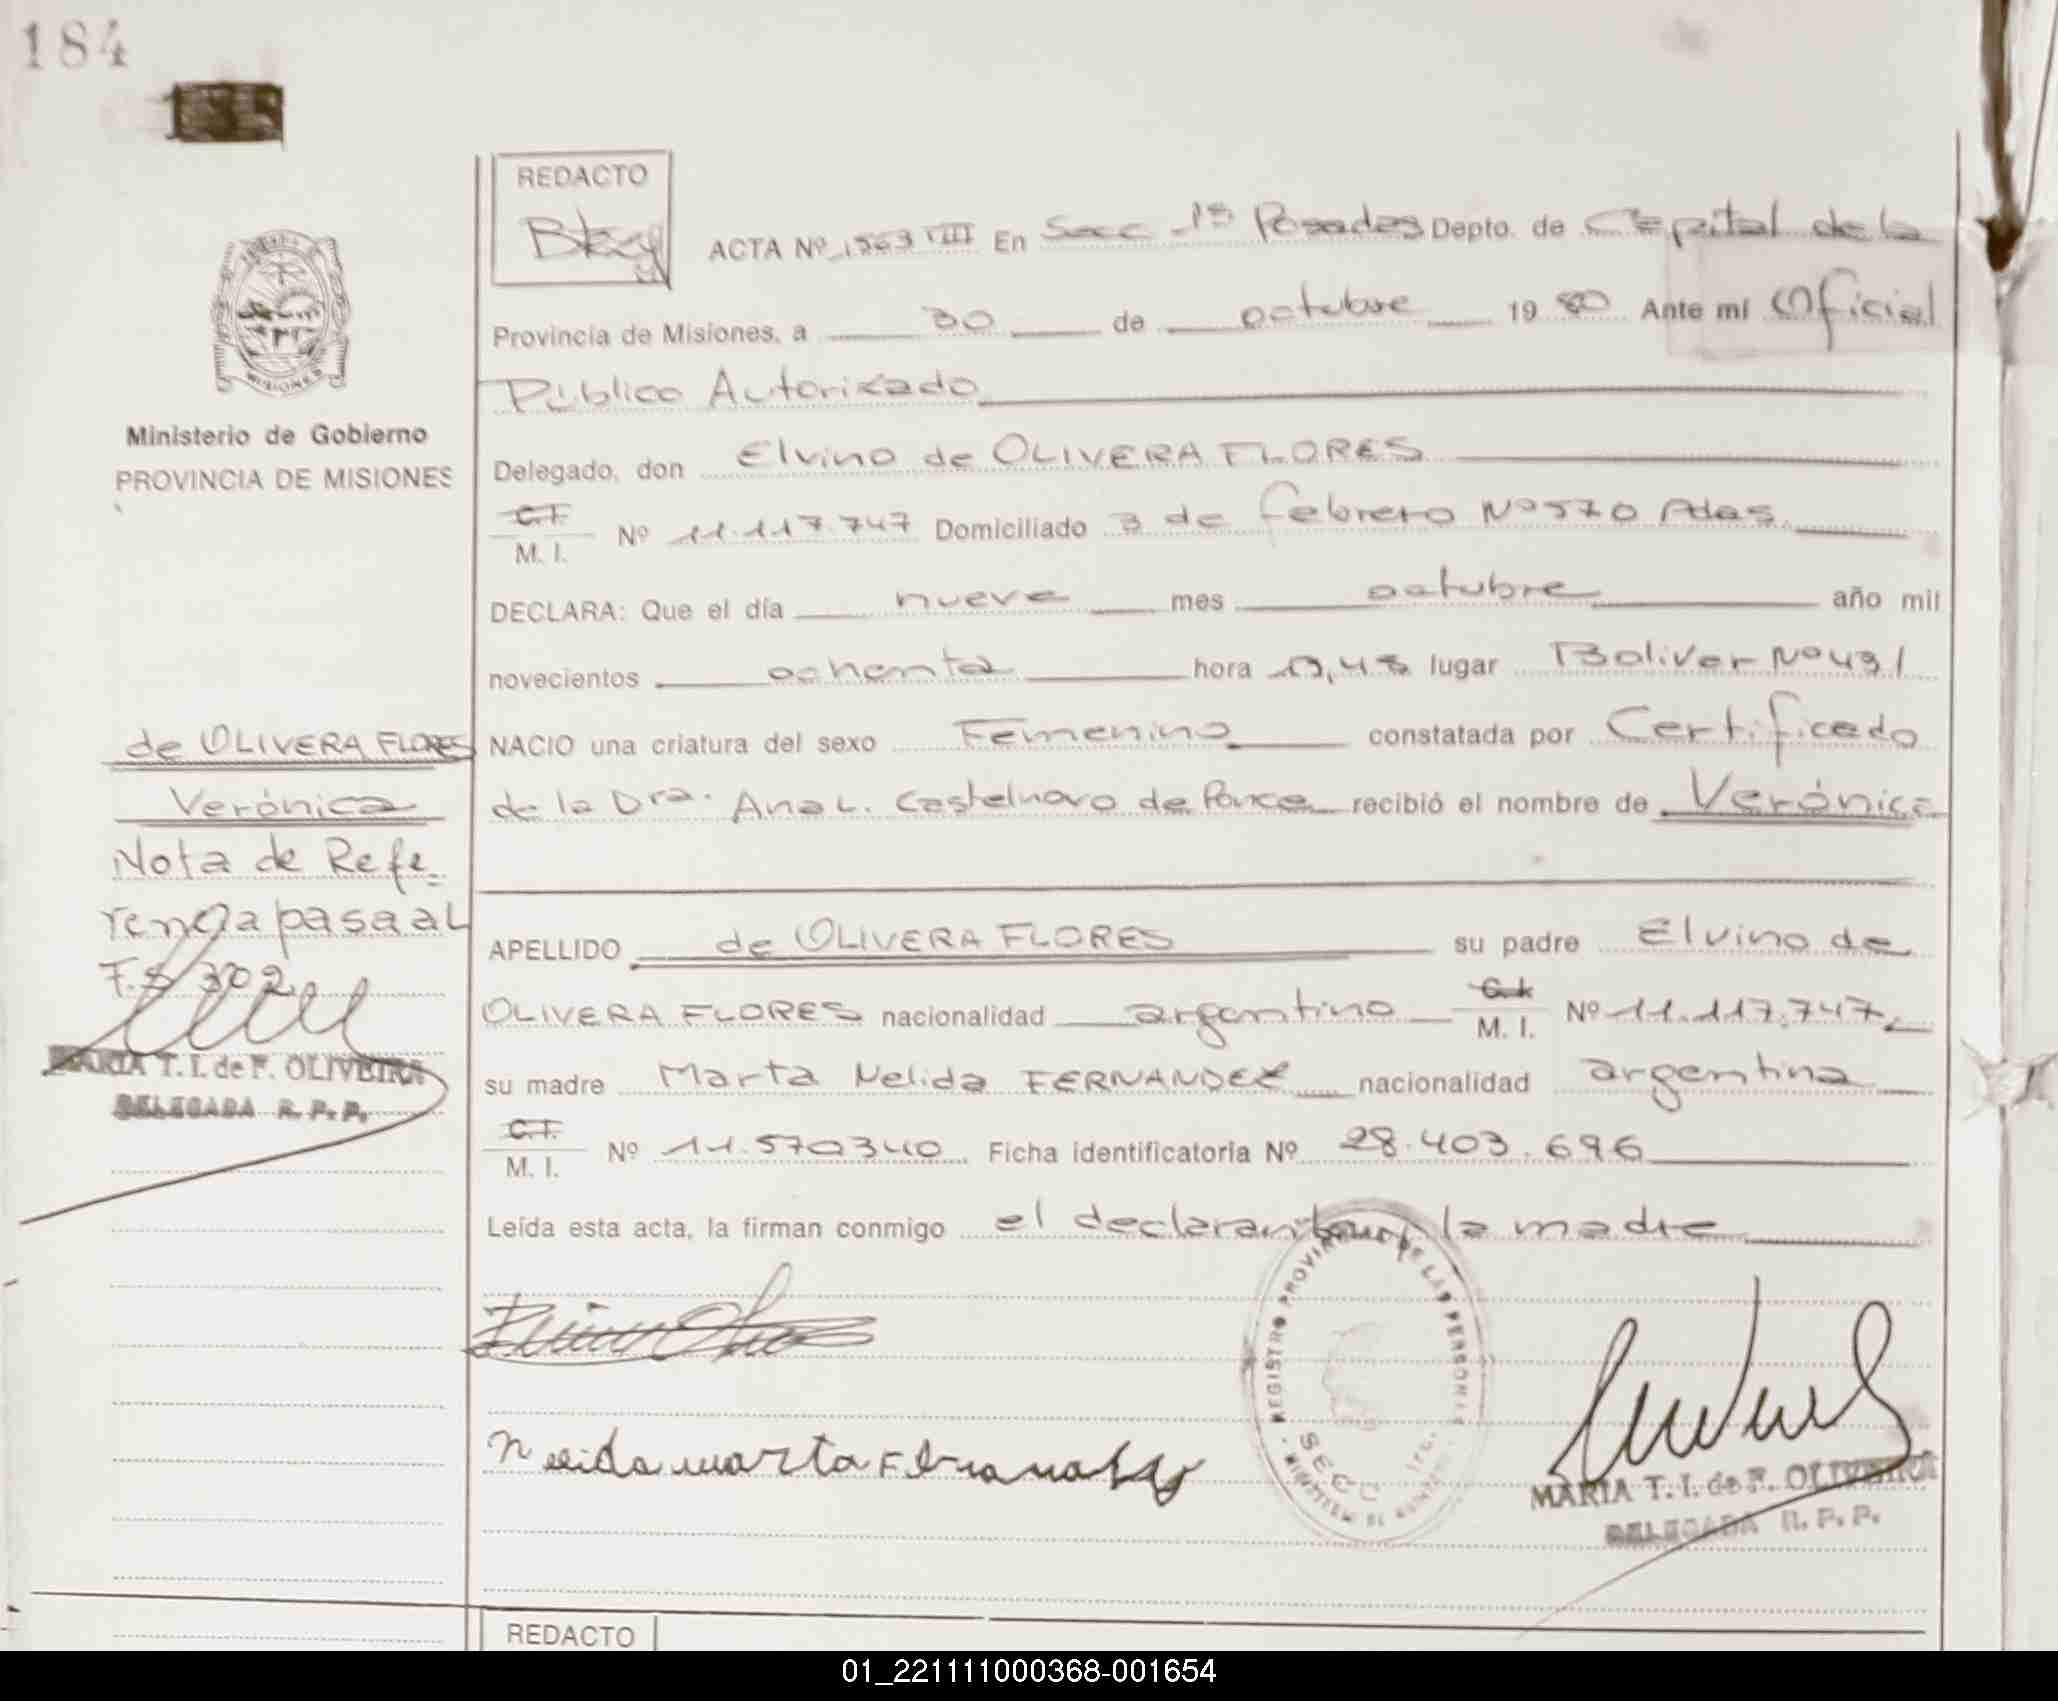 184
REDACTO
ACTA Nº 1563 VIII En Secc 1ª Posadas Depto. de Capital de la
Provincia de Misiones, a 30 de octubre 1980 Ante mí Oficial
Público Autorizado
Ministerio de Gobierno
PROVINCIA DE MISIONES
Delegado, don Elvino de OLIVERA FLORES
C.I.
M. I. Nº 11.117.747 Domiciliado 3 de febrero Nº 570 Pdas
DECLARA: Que el día nueve mes octubre año mil
novecientos ochenta hora lugar Bolivar Nº 431
NACIO una criatura del sexo Femenino constatada por Certificado
de la Dra. Ana L. Castelnovo de Ponce recibió el nombre de Verónica
de OLIVERA FLORES
Verónica
Nota de Refe
rencia pasa al
Fº 302
MARIA T. I. de F. OLIVEIRA
DELEGADA R. P. P.
APELLIDO de OLIVERA FLORES su padre Elvino de
OLIVERA FLORES nacionalidad argentino C.I.
M. I. Nº 11.117.747
su madre Marta Nelida FERNANDEZ nacionalidad argentina
C.I.
M. I. Nº 11.570340 Ficha identificatoria Nº 28.403.696
Leída esta acta, la firman conmigo el declarante y la madre
REGISTRO PROVINCIAL DE LAS PERSONAS
SECC 1ra.
MINISTERIO DE GOBIERNO
Nelida marta Fernandez
MARIA T. I. de F. OLIVEIRA
DELEGADA R. P. P.
REDACTO
01_221111000368-001654